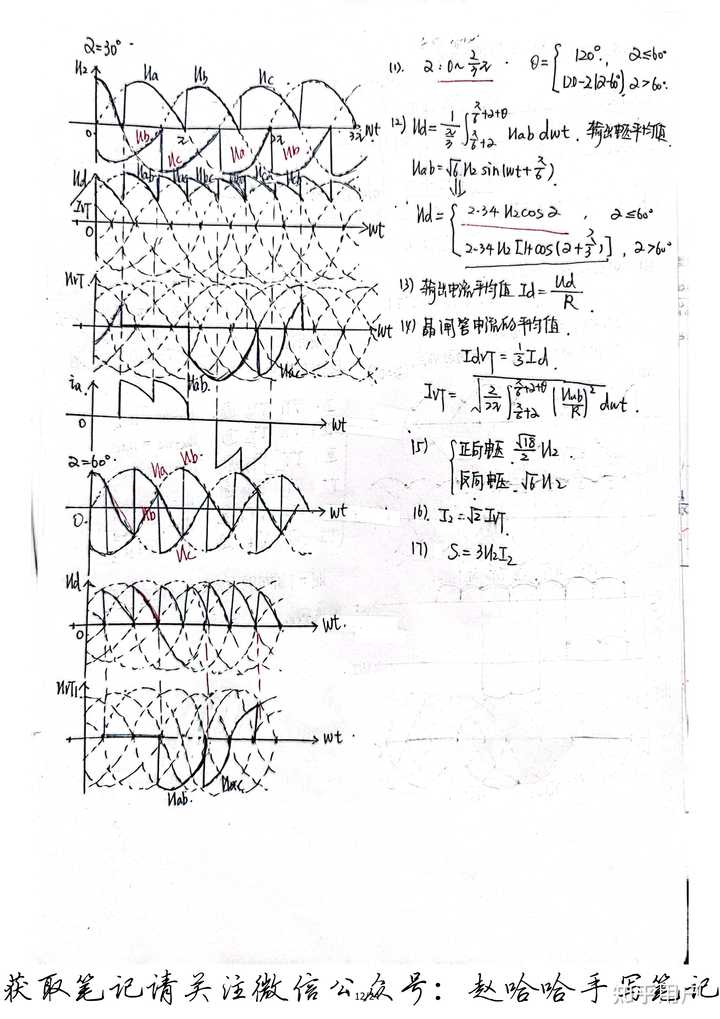 α=30°
U₂
Ua
Ub
Uc
Ub
Uc
Ua
Ub
0
2π
3π
wt
Ud
Uab
Uac
Ubc
IVT
0
wt
UVT
wt
Uab
Uac
ia
0
wt
α=60°
Ua
Ub
Ub
Uc
0
wt
Ud
0
wt
UVT₁
wt
Uab
Uac
(1). α:0~⅔π. θ={120°, α≤60°
120-2(α-60°), α>60°
(2) Ud=1/(π/3)∫_{π/6+α}^{π/6+α+θ} Uab dwt. 输出电压平均值.
Uab=√6 U₂ sin(wt+π/6)
⇓
∴ Ud={2.34U₂cosα, α≤60°
2.34U₂[1+cos(α+π/3)], α>60°
(3) 输出电流平均值 Id=Ud/R
(4) 晶闸管电流的平均值.
IdVT=⅓Id.
IVT=√(2/2π ∫_{π/6+α}^{π/6+α+θ} (Uab/R)² dwt.
(5) {正向电压 √18/2 U₂.
反向电压 √6 U₂
(6). I₂=√2 IVT.
(7) S=3U₂I₂
获取笔记请关注微信公众号：赵哈哈手写笔记
知乎用户